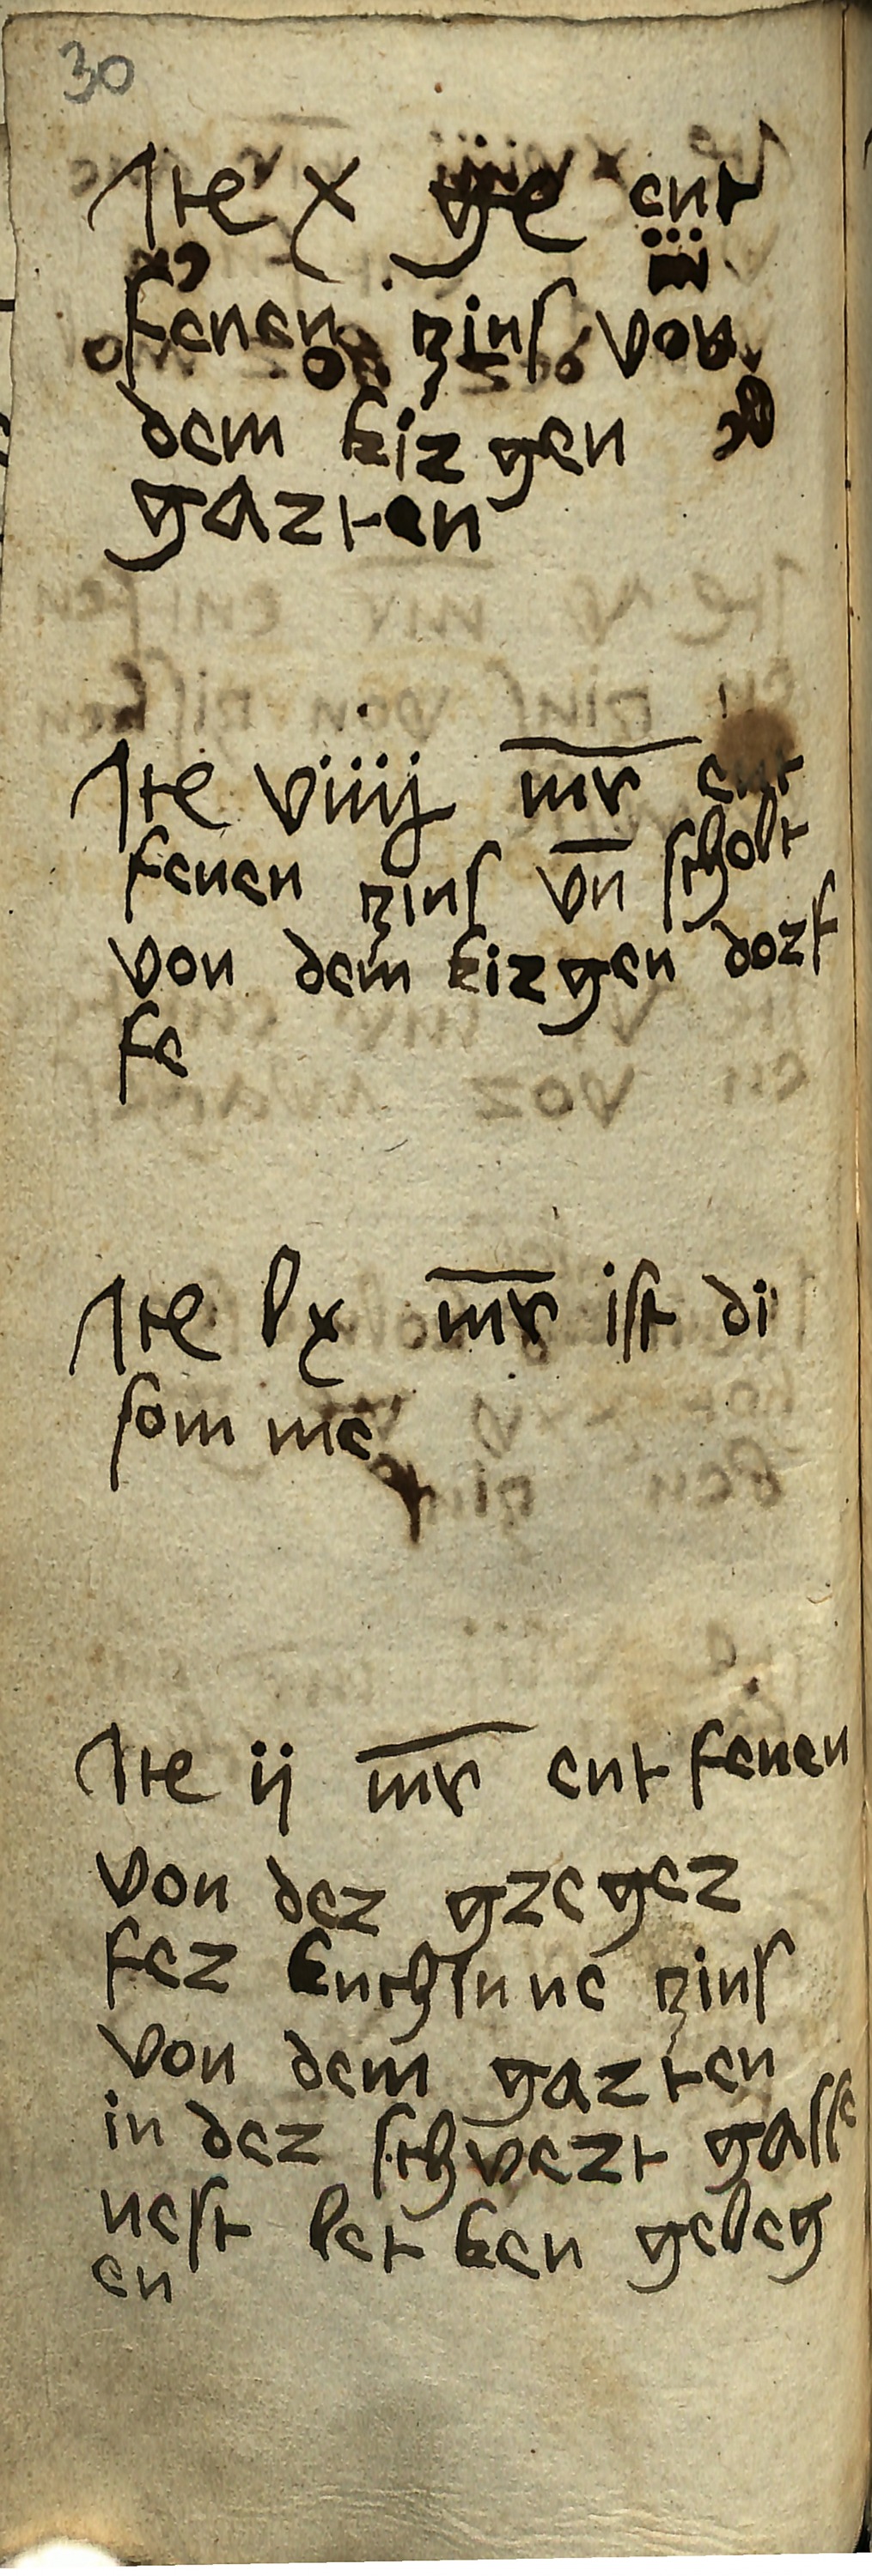 30
Ite x ge ent
fenen zins von
dem kirgen
garten
Ite viiij mr ent
fenen zins vn scholt
von dem kirgen dorf
fe
Ite lx mr ist di
som me
Ite ij mr ent fenen
von der greger
fer kuchinne zins
von dem garten
in der schvert gasse
nest let ken geleg
en